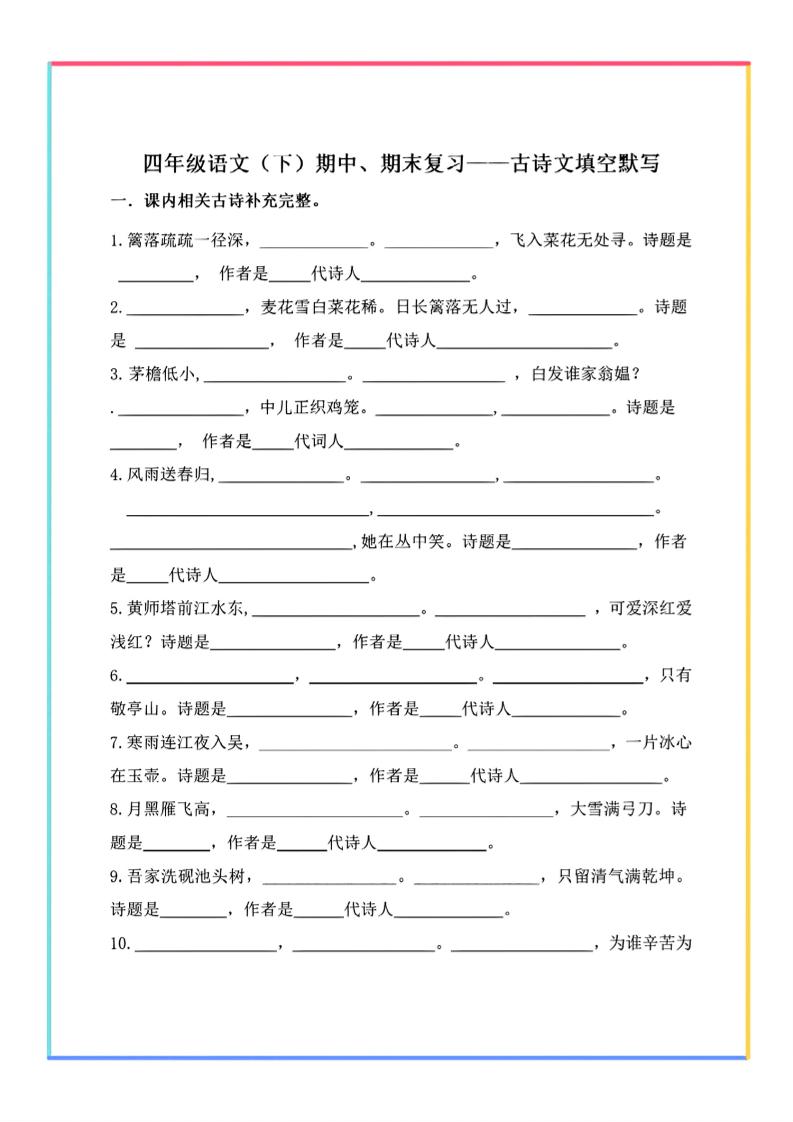 四年级语文（下）期中、期末复习——古诗文填空默写
一．课内相关古诗补充完整。
1.篱落疏疏一径深，_____________。_____________，飞入菜花无处寻。诗题是
_________， 作者是_____代诗人_____________。
2.______________，麦花雪白菜花稀。日长篱落无人过，_____________。诗题
是 ________________， 作者是_____代诗人_____________________。
3. 茅檐低小,_________________。_________________ ，白发谁家翁媪？
._______________，中儿正织鸡笼。______________,_____________。诗题是
________， 作者是_____代词人_____________。
4.风雨送春归,_______________。________________,__________________。
_____________________________,_________________________________。
_____________________________,她在丛中笑。诗题是_______________，作者
是_____代诗人__________________。
5.黄师塔前江水东,____________________。__________________ ，可爱深红爱
浅红？诗题是_______________，作者是_____代诗人_______________。
6.____________________，____________________。__________________，只有
敬亭山。诗题是_______________，作者是_____代诗人_____________。
7.寒雨连江夜入吴，_______________________。_________________，一片冰心
在玉壶。诗题是_______________，作者是______代诗人_________________。
8.月黑雁飞高，_____________________。________________，大雪满弓刀。诗
题是________，作者是______代诗人_____________。
9.吾家洗砚池头树，________________。_______________，只留清气满乾坤。
诗题是________，作者是______代诗人_____________。
10._________________，_________________。_________________，为谁辛苦为